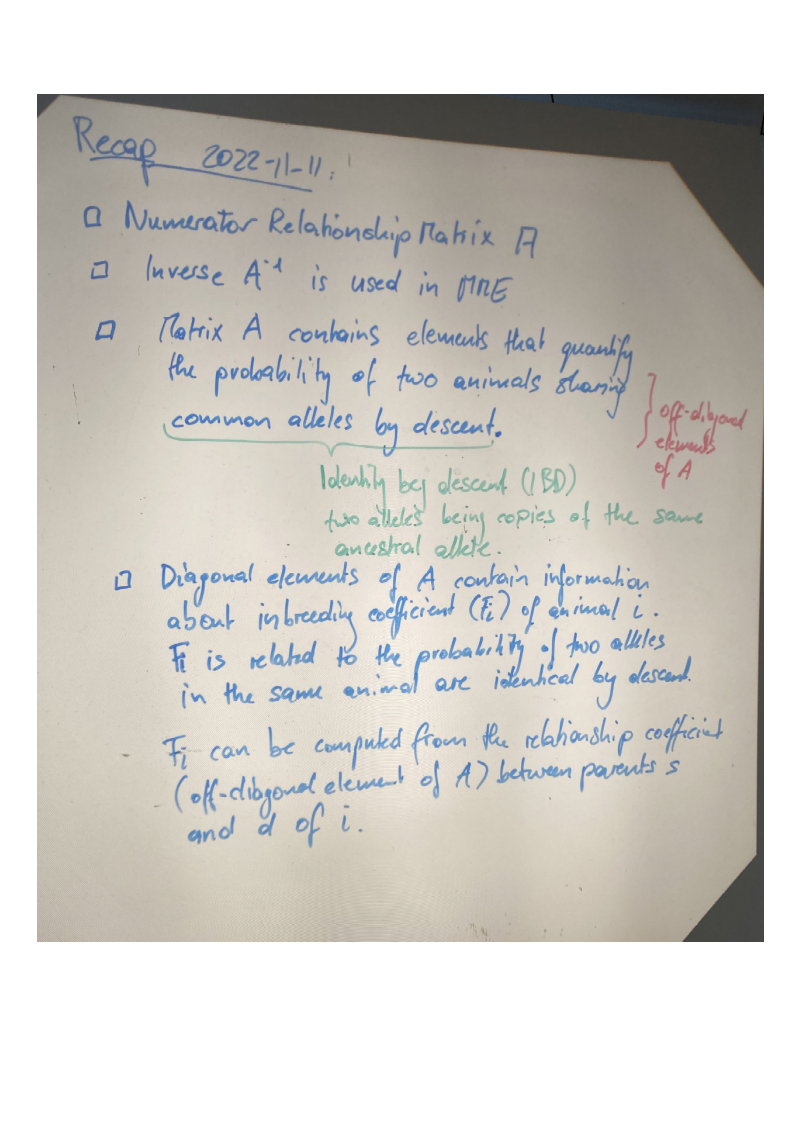 Recap 2022-11-11:
□ Numerator Relationship Matrix A
□ Inverse A⁻¹ is used in MME
□ Matrix A contains elements that quantify
the probability of two animals sharing
common alleles by descent.
} off-diagonal
elements
of A
Identity by descent (IBD)
two alleles being copies of the same
ancestral allele.
□ Diagonal elements of A contain information
about inbreeding coefficient (Fi) of animal i.
Fi is related to the probability of two alleles
in the same animal are identical by descent.
Fi can be computed from the relationship coefficient
(off-diagonal element of A) between parents s
and d of i.